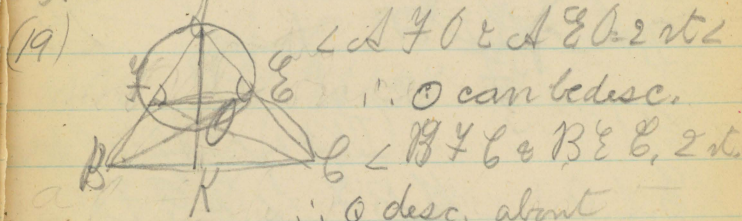 (19)
A
F E
O
B K C
< A F O & A E O = 2 rt <
∴ ⊙ can be desc.
< B F C & B E C, 2 rt.
∴ ⊙ desc. about